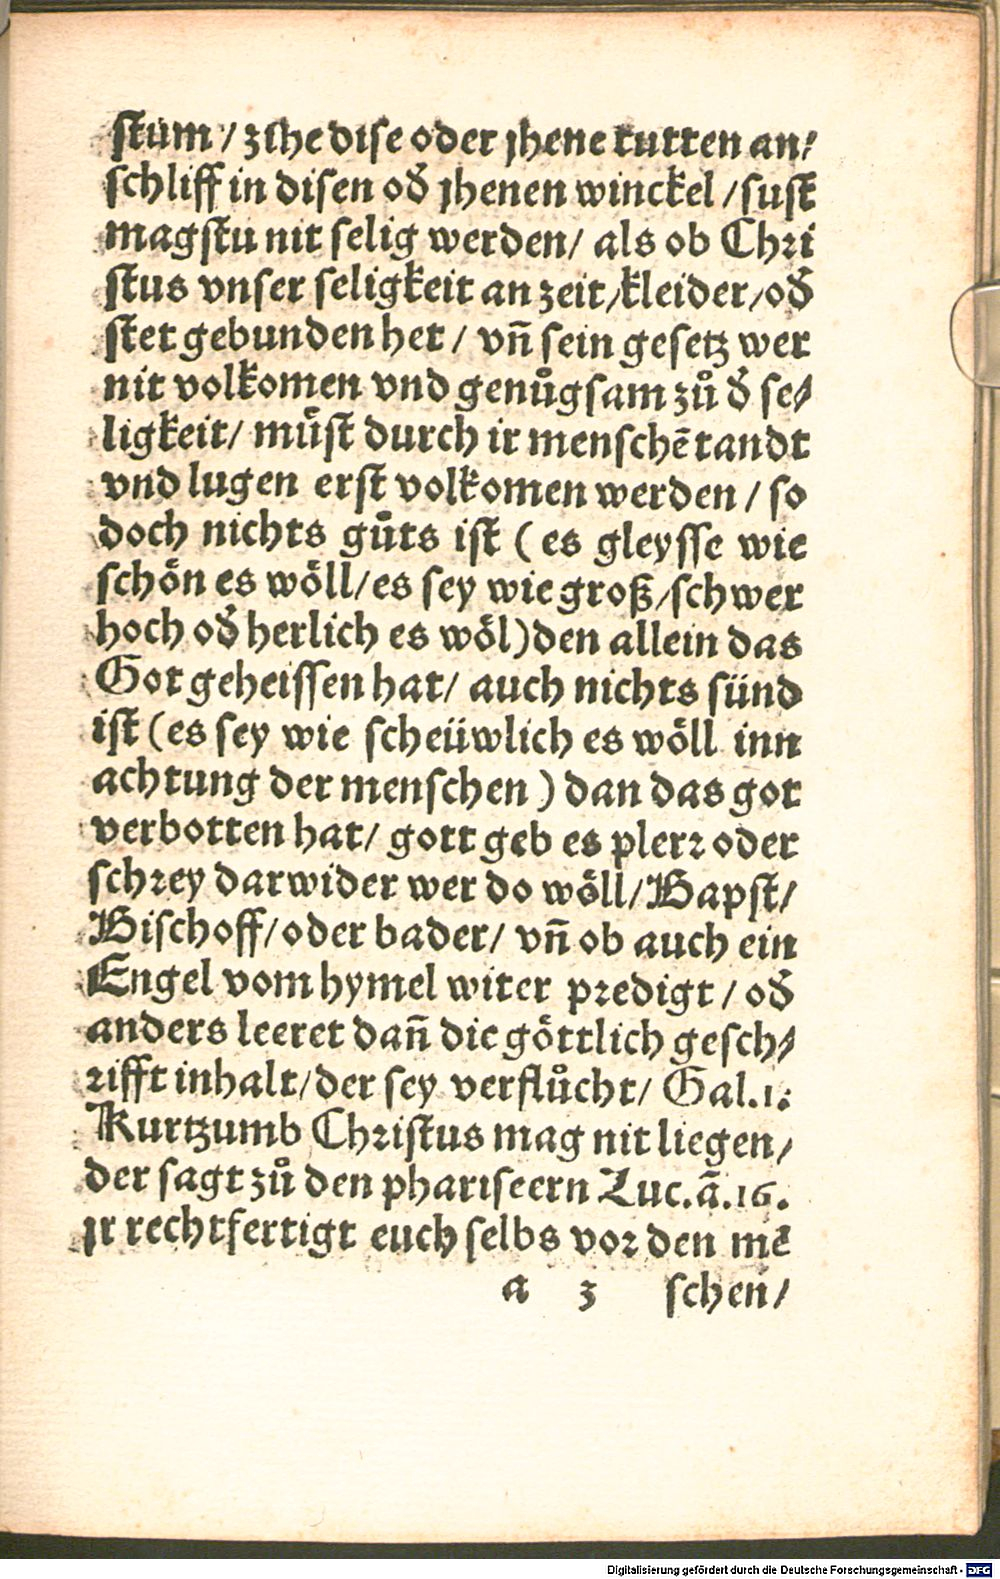 stum / zihe dise oder jhene kutten an⸗
schliff in disen oď jhenen winckel / sust
magstu nit selig werden / als ob Chri
stus vnser seligkeit an zeit / kleider / oď
stet gebunden het / vñ sein gesetz wer
nit volkomen vnd genůgsam zů ď se⸗
ligkeit / müst durch ir menschē tandt
vnd lugen erst volkomen werden / so
doch nichts gůts ist ( es gleysse wie
schön es wöll / es sey wie groß / schwer
hoch oď herlich es wöl) den allein das
Got geheissen hat / auch nichts sünd
ist (es sey wie scheüwlich es wöll inn
achtung der menschen ) dan das got
verbotten hat / gott geb es plerr oder
schrey darwider wer do wöll / Bapst /
Bischoff / oder bader / vñ ob auch ein
Engel vom hymel witer predigt / oď
anders leeret dañ die göttlich gesch⸗
rifft inhalt / der sey verflůcht / Gal. 1.
Kurtzumb Christus mag nit liegen /
der sagt zů den phariseern Luc. ā. 16.
jr rechtfertigt euch selbs vor den mē
a 3 schen /
Digitalisierung gefördert durch die Deutsche Forschungsgemeinschaft - DFG